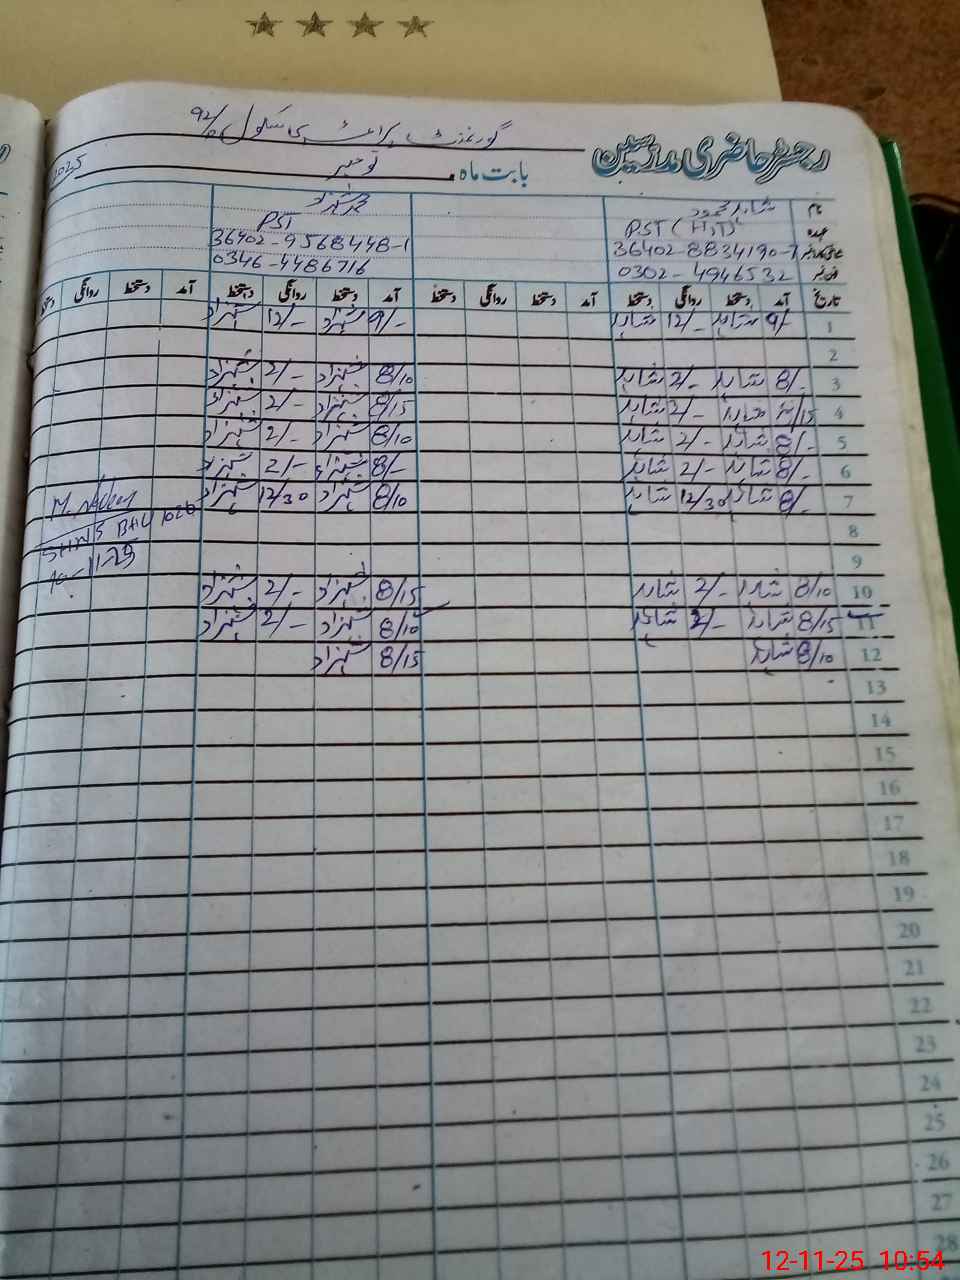 گورنمنٹ پرائمری سکول 92/
رجسٹر حاضری مدرسین
بابت ماہ نومبر 2025
نام شاہد محمود شہزاد
عہدہ PST (H,T) PST
36402-8834190-7 36402-9568448-1
0302-4946532 0346-4486716
تاریخ آمد دستخط روانگی دستخط آمد دستخط روانگی دستخط آمد دستخط روانگی دستخط آمد دستخط روانگی
1 9/- شاہد 12/- شاہد 9/- شہزاد 12/- شہزاد
2
3 8/- شاہد 2/- شاہد 8/10 شہزاد 2/- شہزاد
4 شاہد 2/- شاہد 8/15 شہزاد 2/- شہزاد
5 8/- شاہد 2/- شاہد 8/10 شہزاد 2/- شہزاد
6 8/- شاہد 2/- شاہد 8/- شہزاد 2/- شہزاد
7 8/- شاہد 12/30 شاہد 8/10 شہزاد 12/30 شہزاد
8
9
10 8/10 شاہد 2/- شاہد 8/15 شہزاد 2/- شہزاد
11 8/15 شاہد 2/- شاہد 8/10 شہزاد 2/- شہزاد
12 8/10 شاہد 8/15 شہزاد
13
14
15
16
17
18
19
20
21
22
23
24
25
26
27
28
12-11-25 10:54